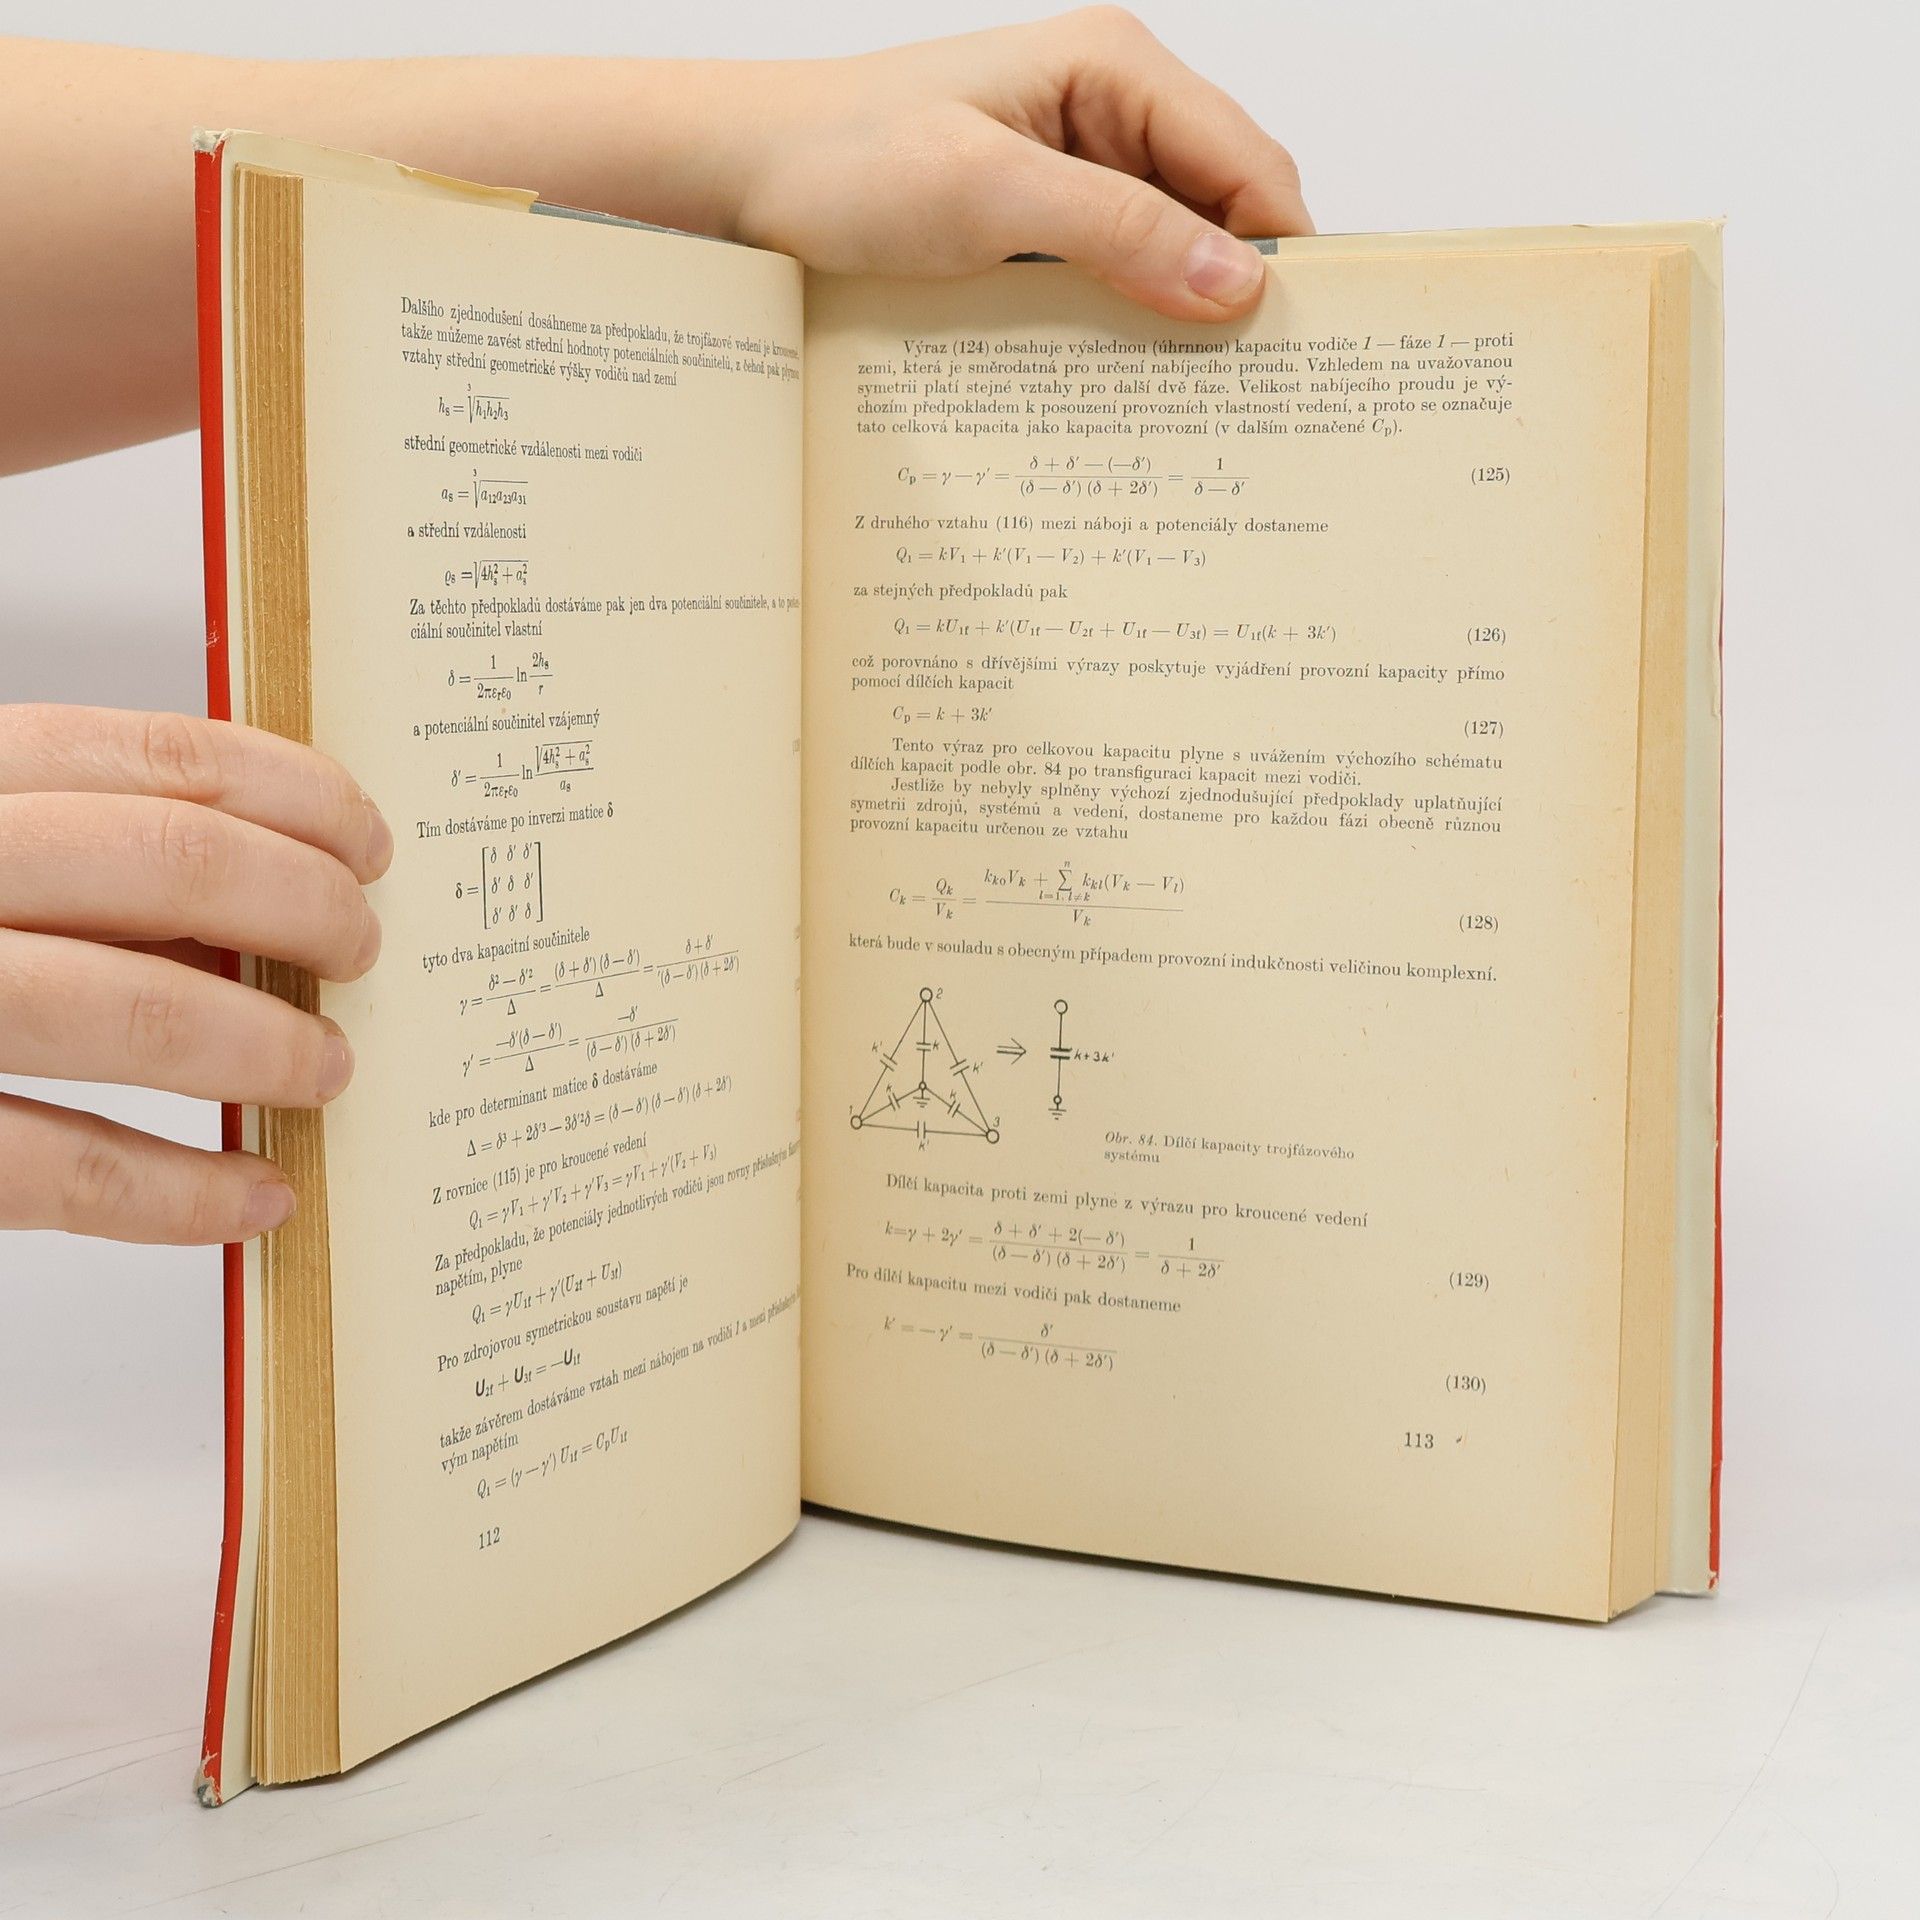 Dalšího zjednodušení dosáhneme za předpokladu, že trojfázové vedení je kroucené,
takže můžeme zavést střední hodnoty potenciálních součinitelů, z čehož pak plynou
vztahy střední geometrické výšky vodičů nad zemí
hₛ = ∛(h₁h₂h₃)
střední geometrické vzdálenosti mezi vodiči
aₛ = ∛(a₁₂a₂₃a₃₁)
a střední vzdálenosti
ϱₛ = √(4hₛ² + aₛ²)
Za těchto předpokladů dostáváme pak jen dva potenciální součinitele, a to poten-
ciální součinitel vlastní
δ = 1/(2πεᵣε₀) ln 2hₛ/r
a potenciální součinitel vzájemný
δ′ = 1/(2πεᵣε₀) ln √(4hₛ² + aₛ²)/aₛ
Tím dostáváme po inverzi matice δ
δ δ′ δ′
δ = δ′ δ δ′
δ′ δ′ δ
tyto dva kapacitní součinitele
γ = (δ² — δ′²)/Δ = (δ + δ′) (δ — δ′)/Δ = (δ + δ′)/((δ — δ′) (δ + 2δ′))
γ′ = —δ′(δ — δ′)/Δ = —δ′/((δ — δ′) (δ + 2δ′))
kde pro determinant matice δ dostáváme
Δ = δ³ + 2δ′³ — 3δ′²δ = (δ — δ′) (δ — δ′) (δ + 2δ′)
Z rovnice (115) je pro kroucené vedení
Q₁ = γV₁ + γ′V₂ + γ′V₃ = γV₁ + γ′(V₂ + V₃)
Za předpokladu, že potenciály jednotlivých vodičů jsou rovny příslušným
napětím, plyne
Q₁ = γU₁f + γ′(U₂f + U₃f)
Pro zdrojovou symetrickou soustavu napětí je
U₂f + U₃f = —U₁f
takže závěrem dostáváme vztah mezi nábojem na vodiči 1 a mezi příslušným
vým napětím
Q₁ = (γ — γ′) U₁f = CₚU₁f
112
Výraz (124) obsahuje výslednou (úhrnnou) kapacitu vodiče 1 — fáze 1 — proti
zemi, která je směrodatná pro určení nabíjecího proudu. Vzhledem na uvažovanou
symetrii platí stejné vztahy pro další dvě fáze. Velikost nabíjecího proudu je vý-
chozím předpokladem k posouzení provozních vlastností vedení, a proto se označuje
tato celková kapacita jako kapacita provozní (v dalším označené Cₚ).
Cₚ = γ — γ′ = (δ + δ′ — (—δ′))/((δ — δ′) (δ + 2δ′)) = 1/(δ — δ′) (125)
Z druhého vztahu (116) mezi náboji a potenciály dostaneme
Q₁ = kV₁ + k′(V₁ — V₂) + k′(V₁ — V₃)
za stejných předpokladů pak
Q₁ = kU₁f + k′(U₁f — U₂f + U₁f — U₃f) = U₁f(k + 3k′) (126)
což porovnáno s dřívějšími výrazy poskytuje vyjádření provozní kapacity přímo
pomocí dílčích kapacit
Cₚ = k + 3k′ (127)
Tento výraz pro celkovou kapacitu plyne s uvážením výchozího schématu
dílčích kapacit podle obr. 84 po transfiguraci kapacit mezi vodiči.
Jestliže by nebyly splněny výchozí zjednodušující předpoklady uplatňující
symetrii zdrojů, systémů a vedení, dostaneme pro každou fázi obecně různou
provozní kapacitu určenou ze vztahu
Cₖ = Qₖ/Vₖ = (kₖ₀Vₖ + Σⁿ l=1, l≠k kₖₗ(Vₖ — Vₗ))/Vₖ (128)
která bude v souladu s obecným případem provozní indukčnosti veličinou komplexní.
2
k′ k k′ ⇒ k+3k′
k k
1 3
k′
Obr. 84. Dílčí kapacity trojfázového
systému
Dílčí kapacita proti zemi plyne z výrazu pro kroucené vedení
k=γ + 2γ′ = (δ + δ′ + 2(— δ′))/((δ — δ′) (δ + 2δ′)) = 1/(δ + 2δ′) (129)
Pro dílčí kapacitu mezi vodiči pak dostaneme
k′ = — γ′ = δ′/((δ — δ′) (δ + 2δ′)) (130)
113